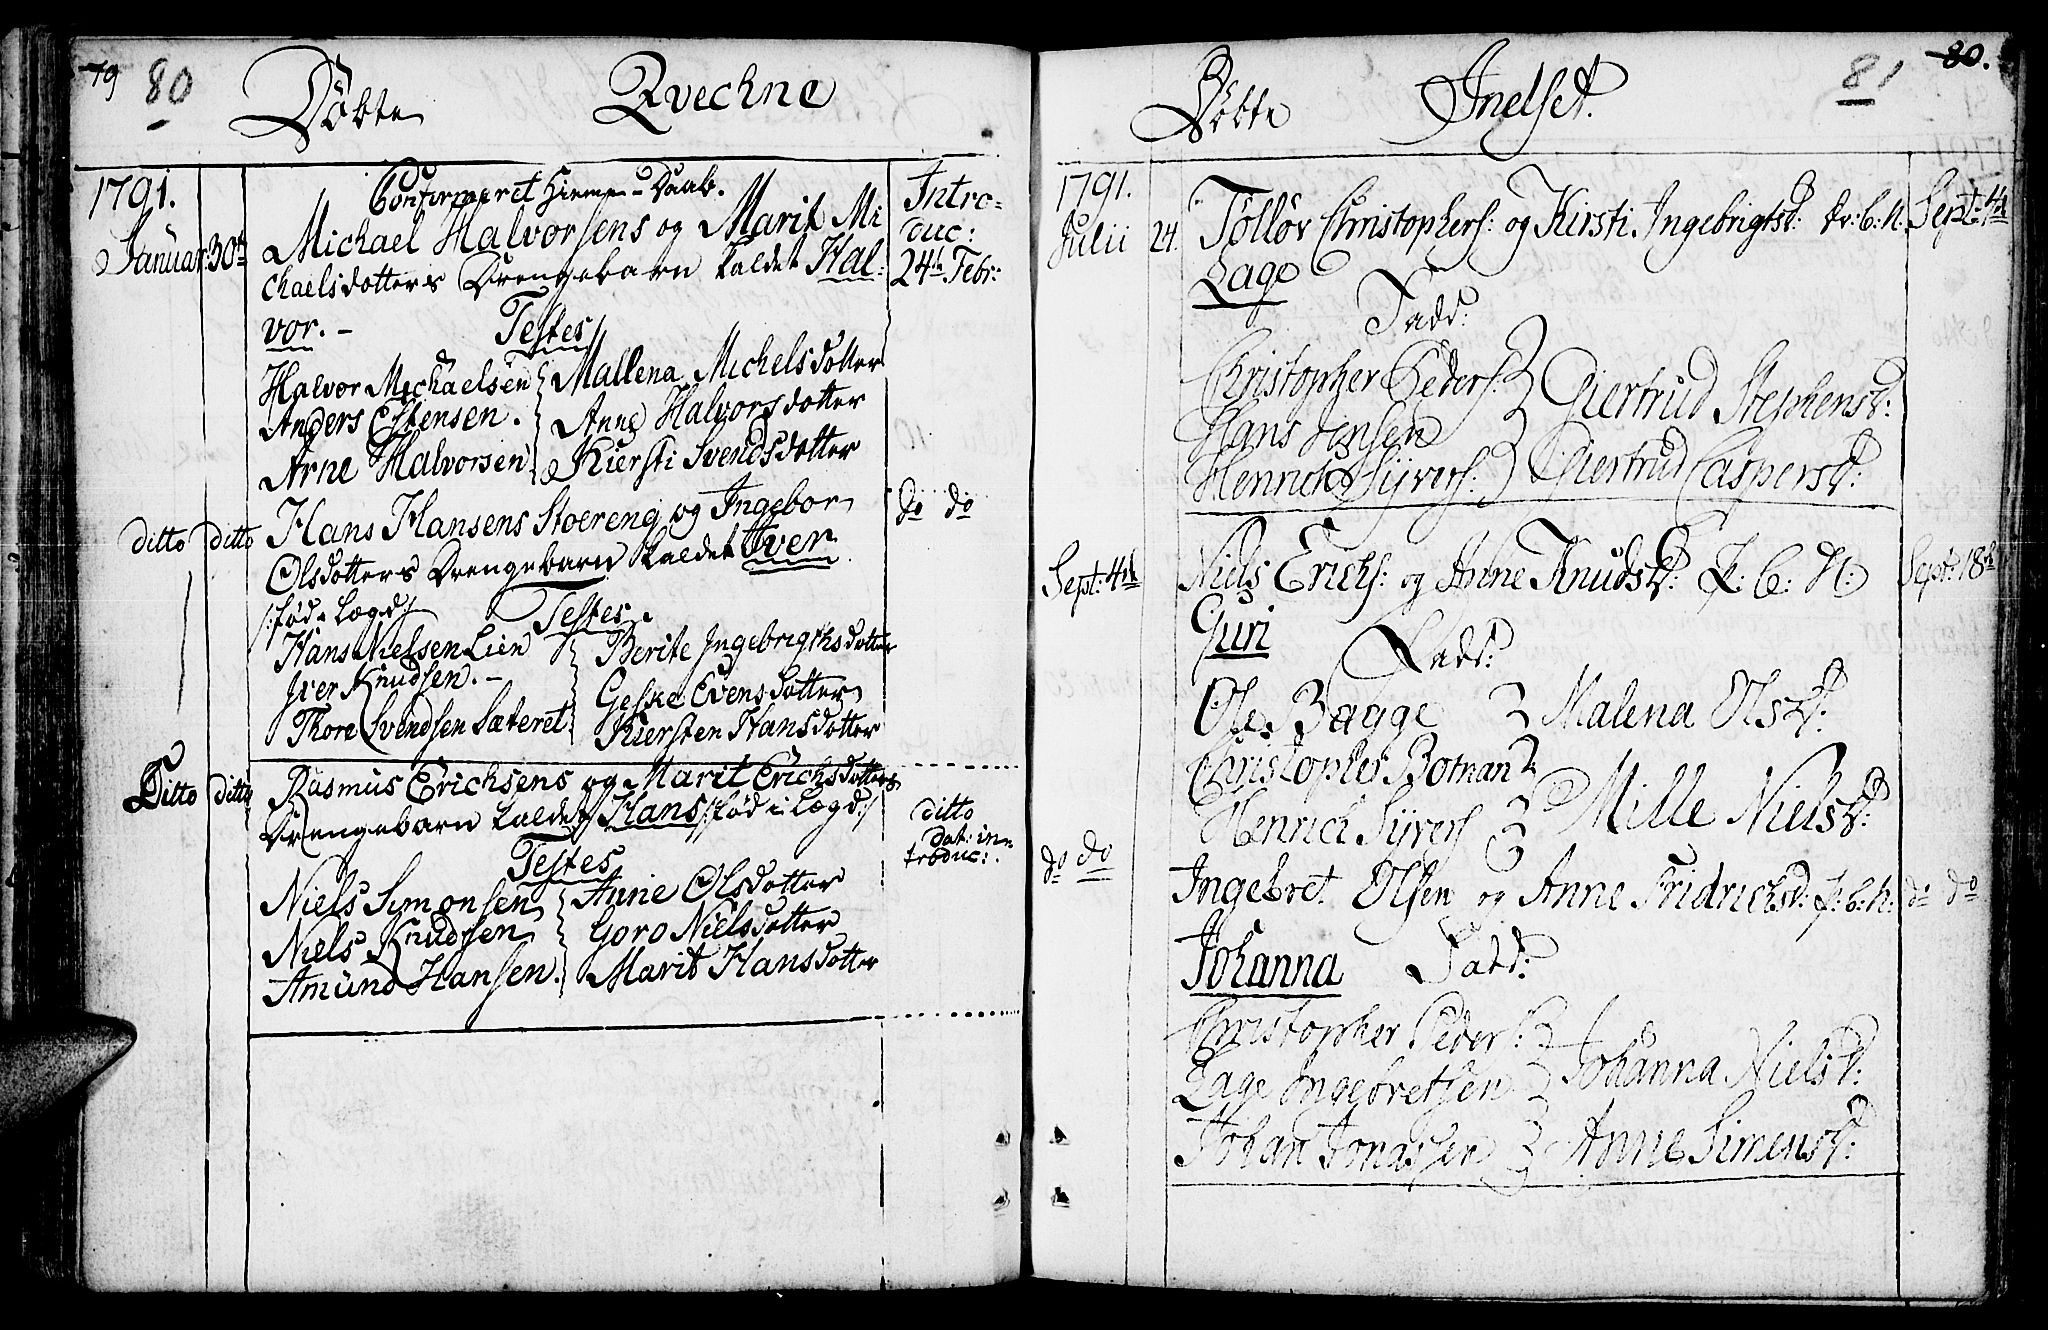 79 80
Döbte Qvechne
1791.
Confirmeret Hiemme-Daab.
Januar: 30te
Michael Halvorsens og Marit Mi
chaelsdotters Drengebarn kaldet Hal-
vor. —
Introduc:
24de Febr:
Testes
Halvor Michaelsen Mallena Michelsdotter
Anders Estensen. Anne Halvorsdotter
Arne Halvorsen Kiersti Svendsdotter
ditto ditto
Hans Hansens Stoereng og Ingebor
Olsdotters Drengebarn kaldet Iver
do do
/:fød i Lægd:/ Testes.
Hans Nielsen Lien Berite Ingebrigthsdotter
Iver Knudsen. — Geske Evensdotter
Thore Svendsen Sæteret Kiersten Hansdotter
Ditto ditto
Rasmus Erichsens og Marit Erichsdotters
Drengebarn kaldet Hans /:fød i Lægd:/
ditto
Dat: in-
troduc:.
Testes
Niels Simonsen Anne Olsdotter
Niels Knudsen Goro Nielsdotter
Amund Hansen. Marit Hansdotter
81 80.
Döbte Inelset.
1791.
Julii 24.
Tölløv Christophers: og Kirsti Ingebrigtsd: Dr: b: N. Sept: 4de
Lage
Fadd:
Christopher Peders: Giertrud Stephensd:
Hans Jensen
Henrich Syvers: Giertrud Caspersd:
Sept: 4de
Niels Erichs: og Anne Knudsd: P: b: N: Sept: 18de
Guri
Fadd:
Ole Bagge Malena Olsd:
Christopher Botnan
Henrich Syvers Mille Nielsd:
do do
Ingebret Olsen og Anne Fridrichsd: P: b: N: do do
Johanna Fadd:
Christopher Peders:
Lage Ingebretsen Johanna Nielsd:
Johan Jonassen Anne Simensd: